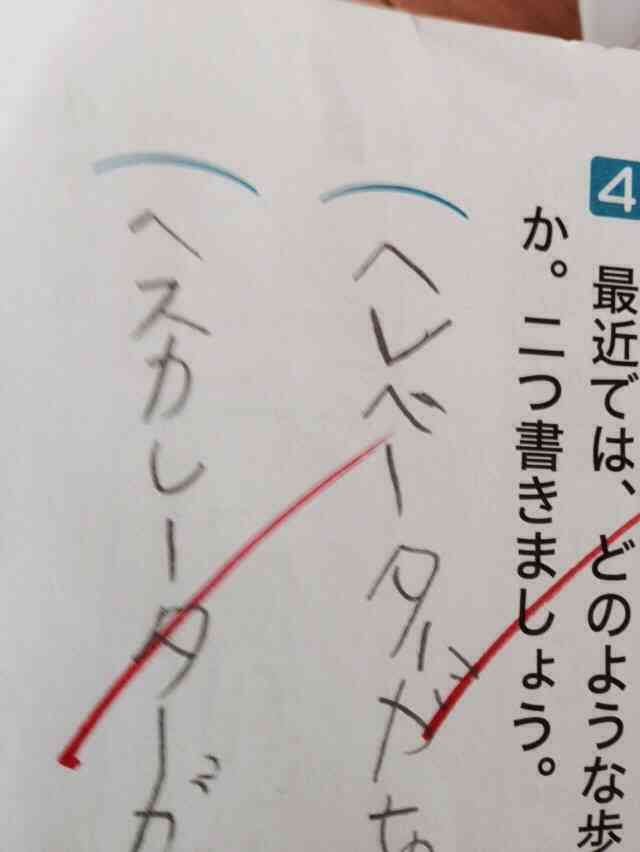 4 最近では、どのような歩
か。二つ書きましょう。
ヘレベーターがな
ヘスカレーターが